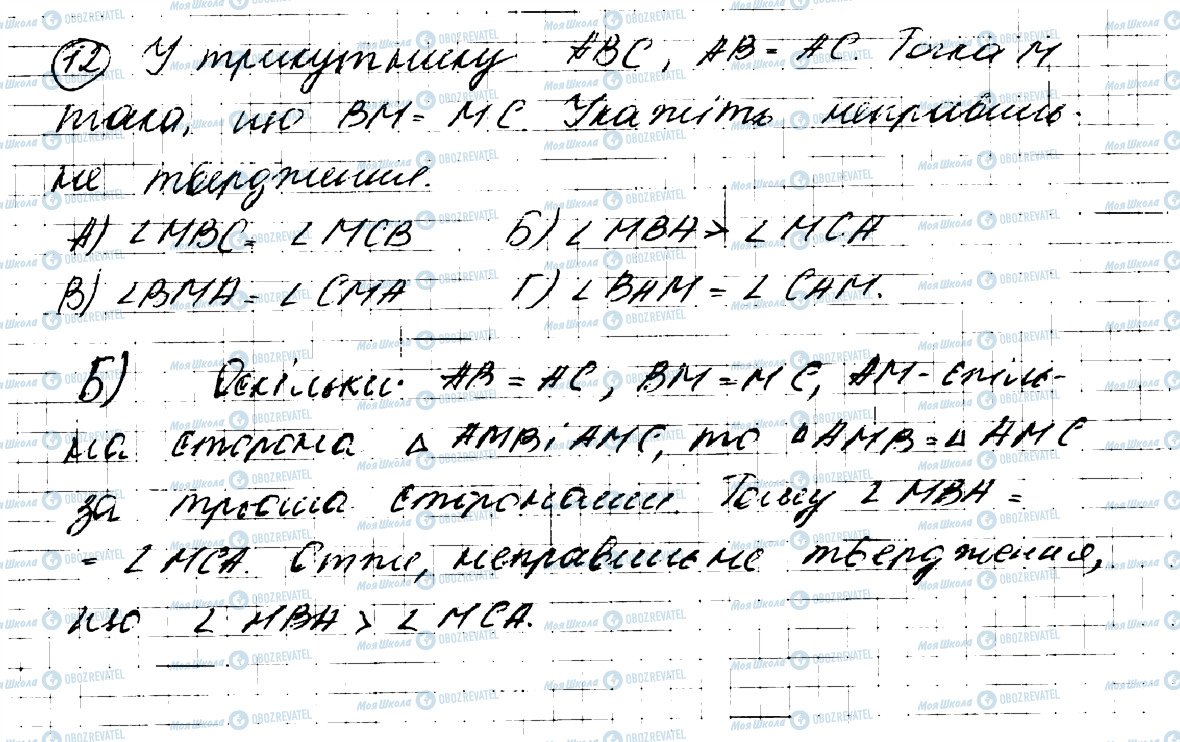 12 У трикутнику ABC, AB = AC. Точка M
така, що BM = MC. Укажіть неправиль-
не твердження.
А) ∠MBC = ∠MCB Б) ∠MBA > ∠MCA
В) ∠BMA = ∠CMA Г) ∠BAM = ∠CAM.
Б) Оскільки AB = AC, BM = MC, AM - спіль-
на сторона △ AMB і AMC, то △AMB = △ AMC
за трьома сторонами. Тому ∠MBA =
= ∠MCA. Отже, неправильне твердження,
що ∠MBA > ∠MCA.